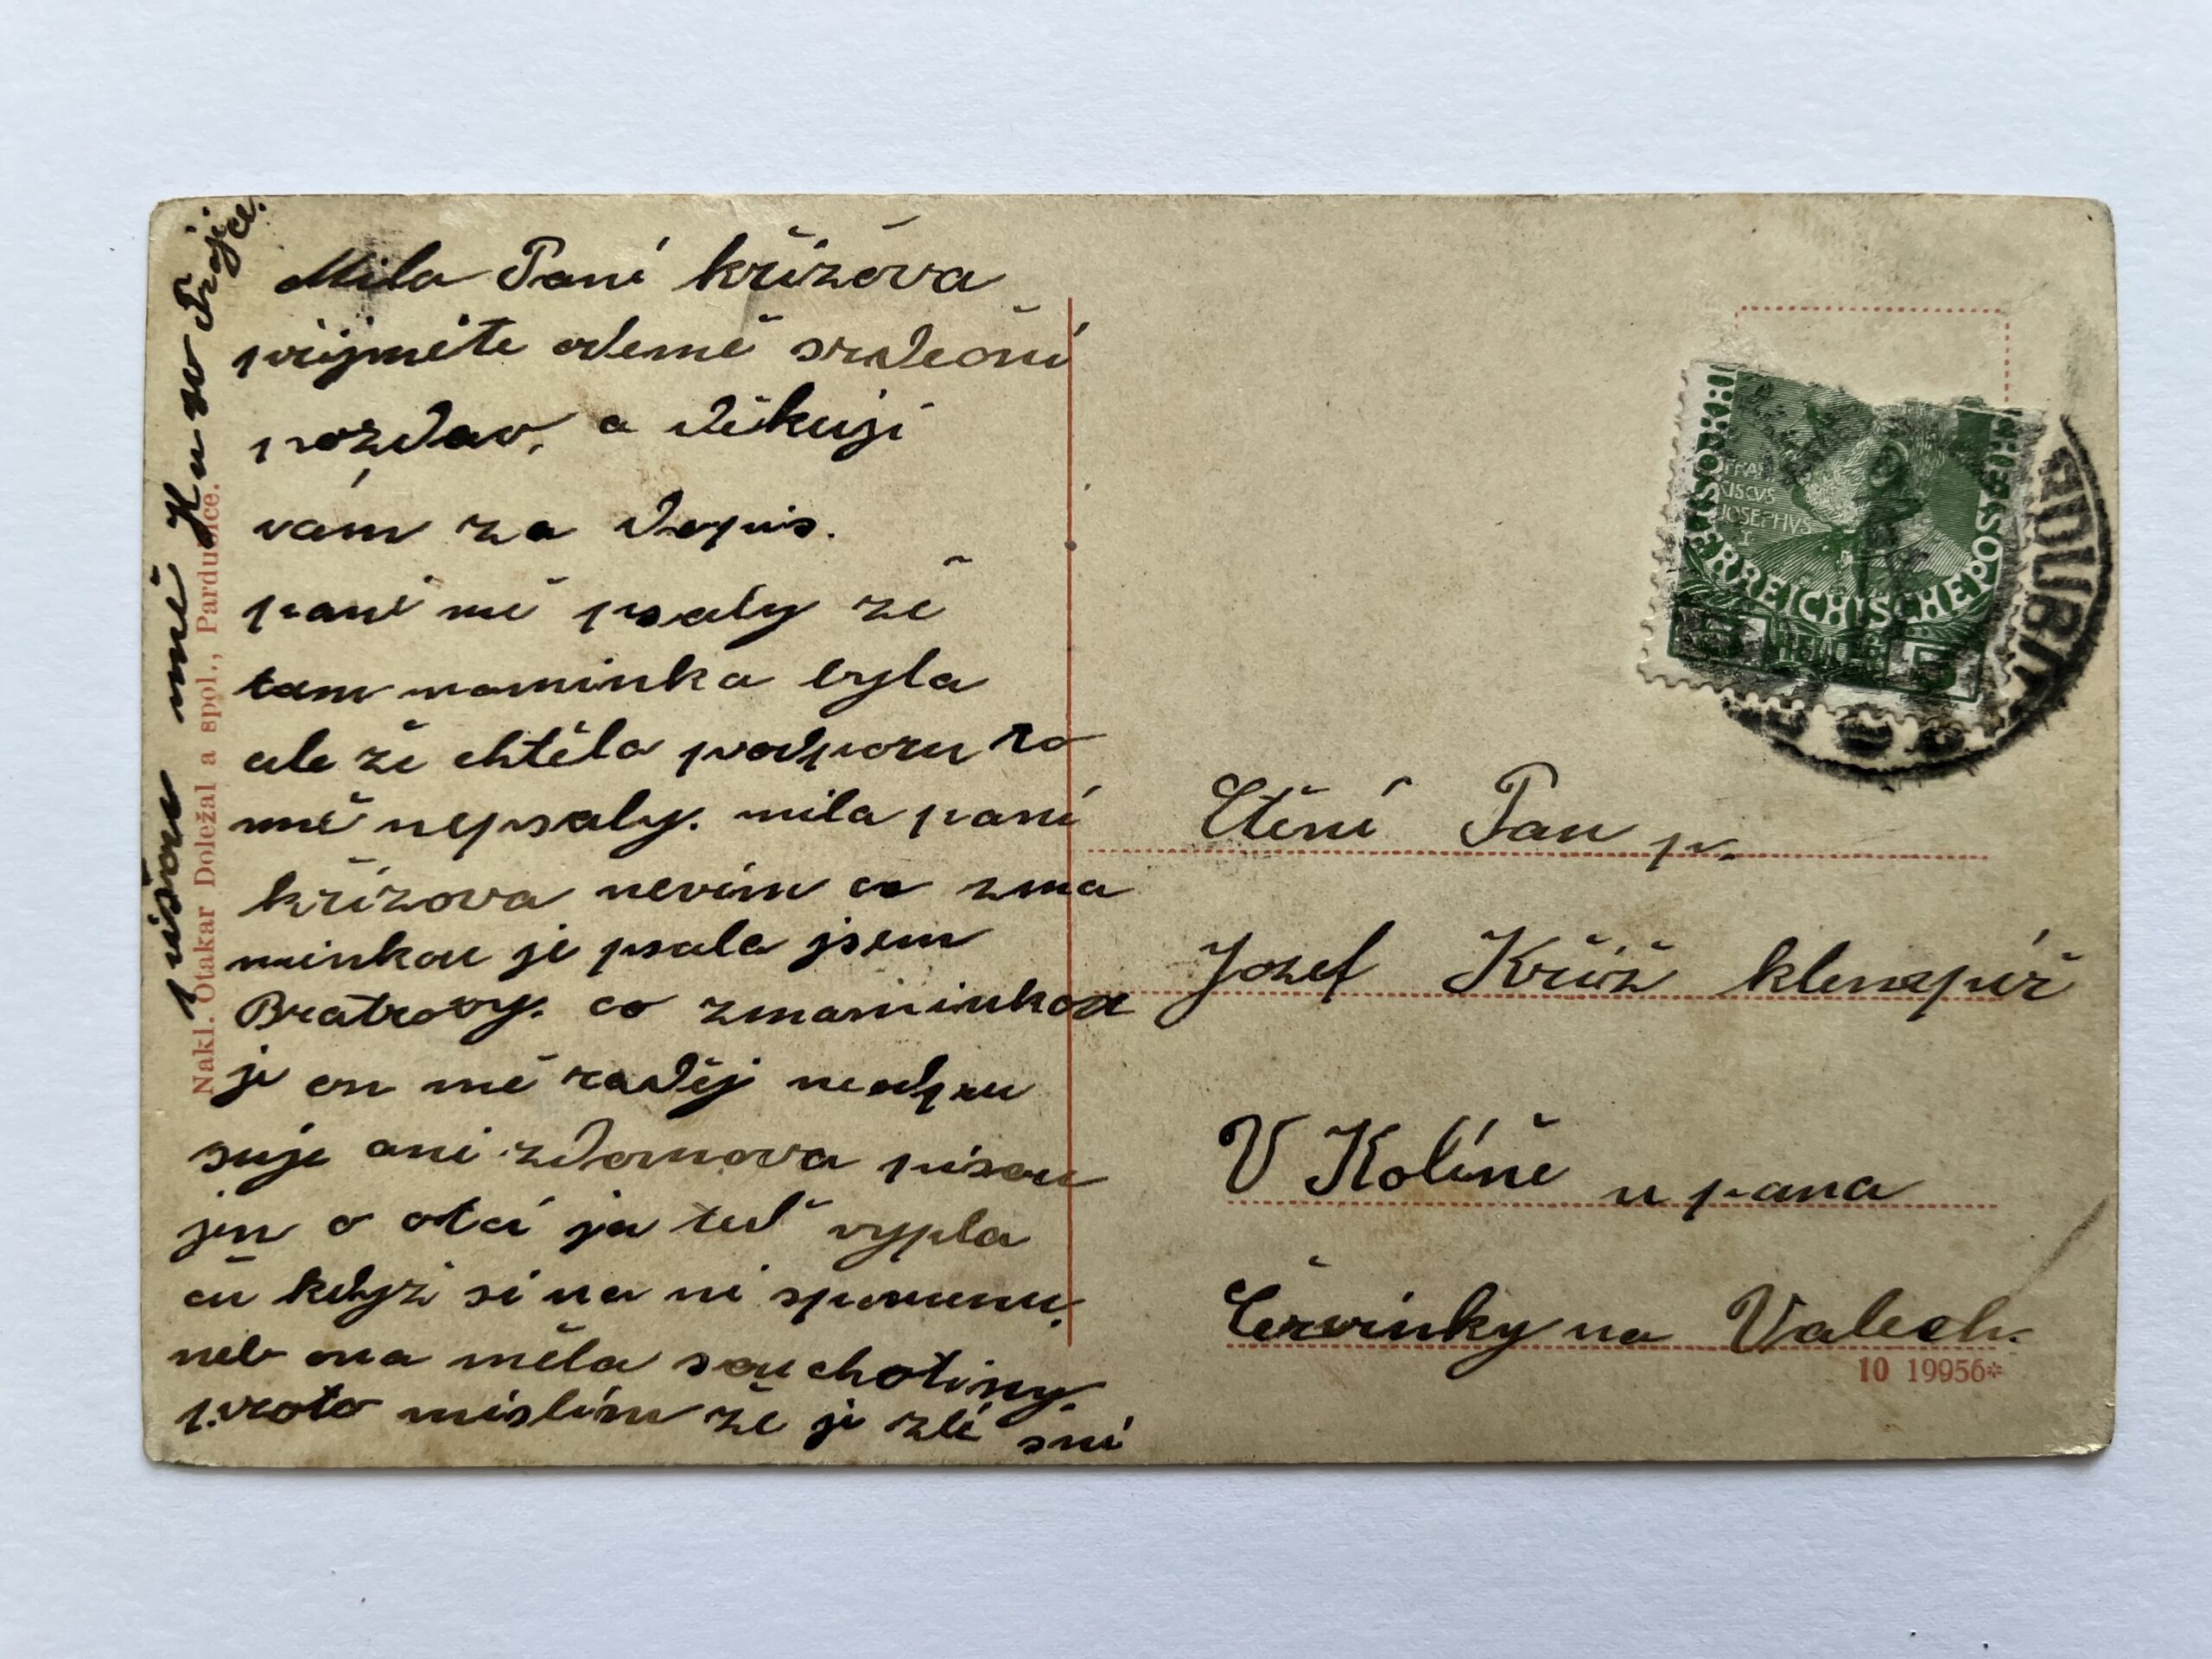 Mila Paní křižova
přijmete odemě srdeční
pozdav, a děkuji
vám za dopis.
paní mě psaly že
tam maminka byla
ale že chtěla podporu to
mě nepsaly. mila paní
křižova nevím co zma
minkou je psala jsem
Bratrovy. co zmaminkou
je on mě raděj neodpu
suje ani zdomova písou
jen o otci ja teď vypla
ču když si na ni spomenu.
neb ona měla souchotiny.
proto mislím že je zlé sní
pišou mě Hu w Trojce.
Nakl. Otakar Doležal a spol., Pardubice.
FRAN
CISCVS
JOSEPHVS
I
ÖSTERREICHISCHE POST
5 HELLER 5
PARDUB
Ctění Pan p.
Jozef Křiž klempíř
V Kolíně u pana
Červinky na Valech.
10 19956*